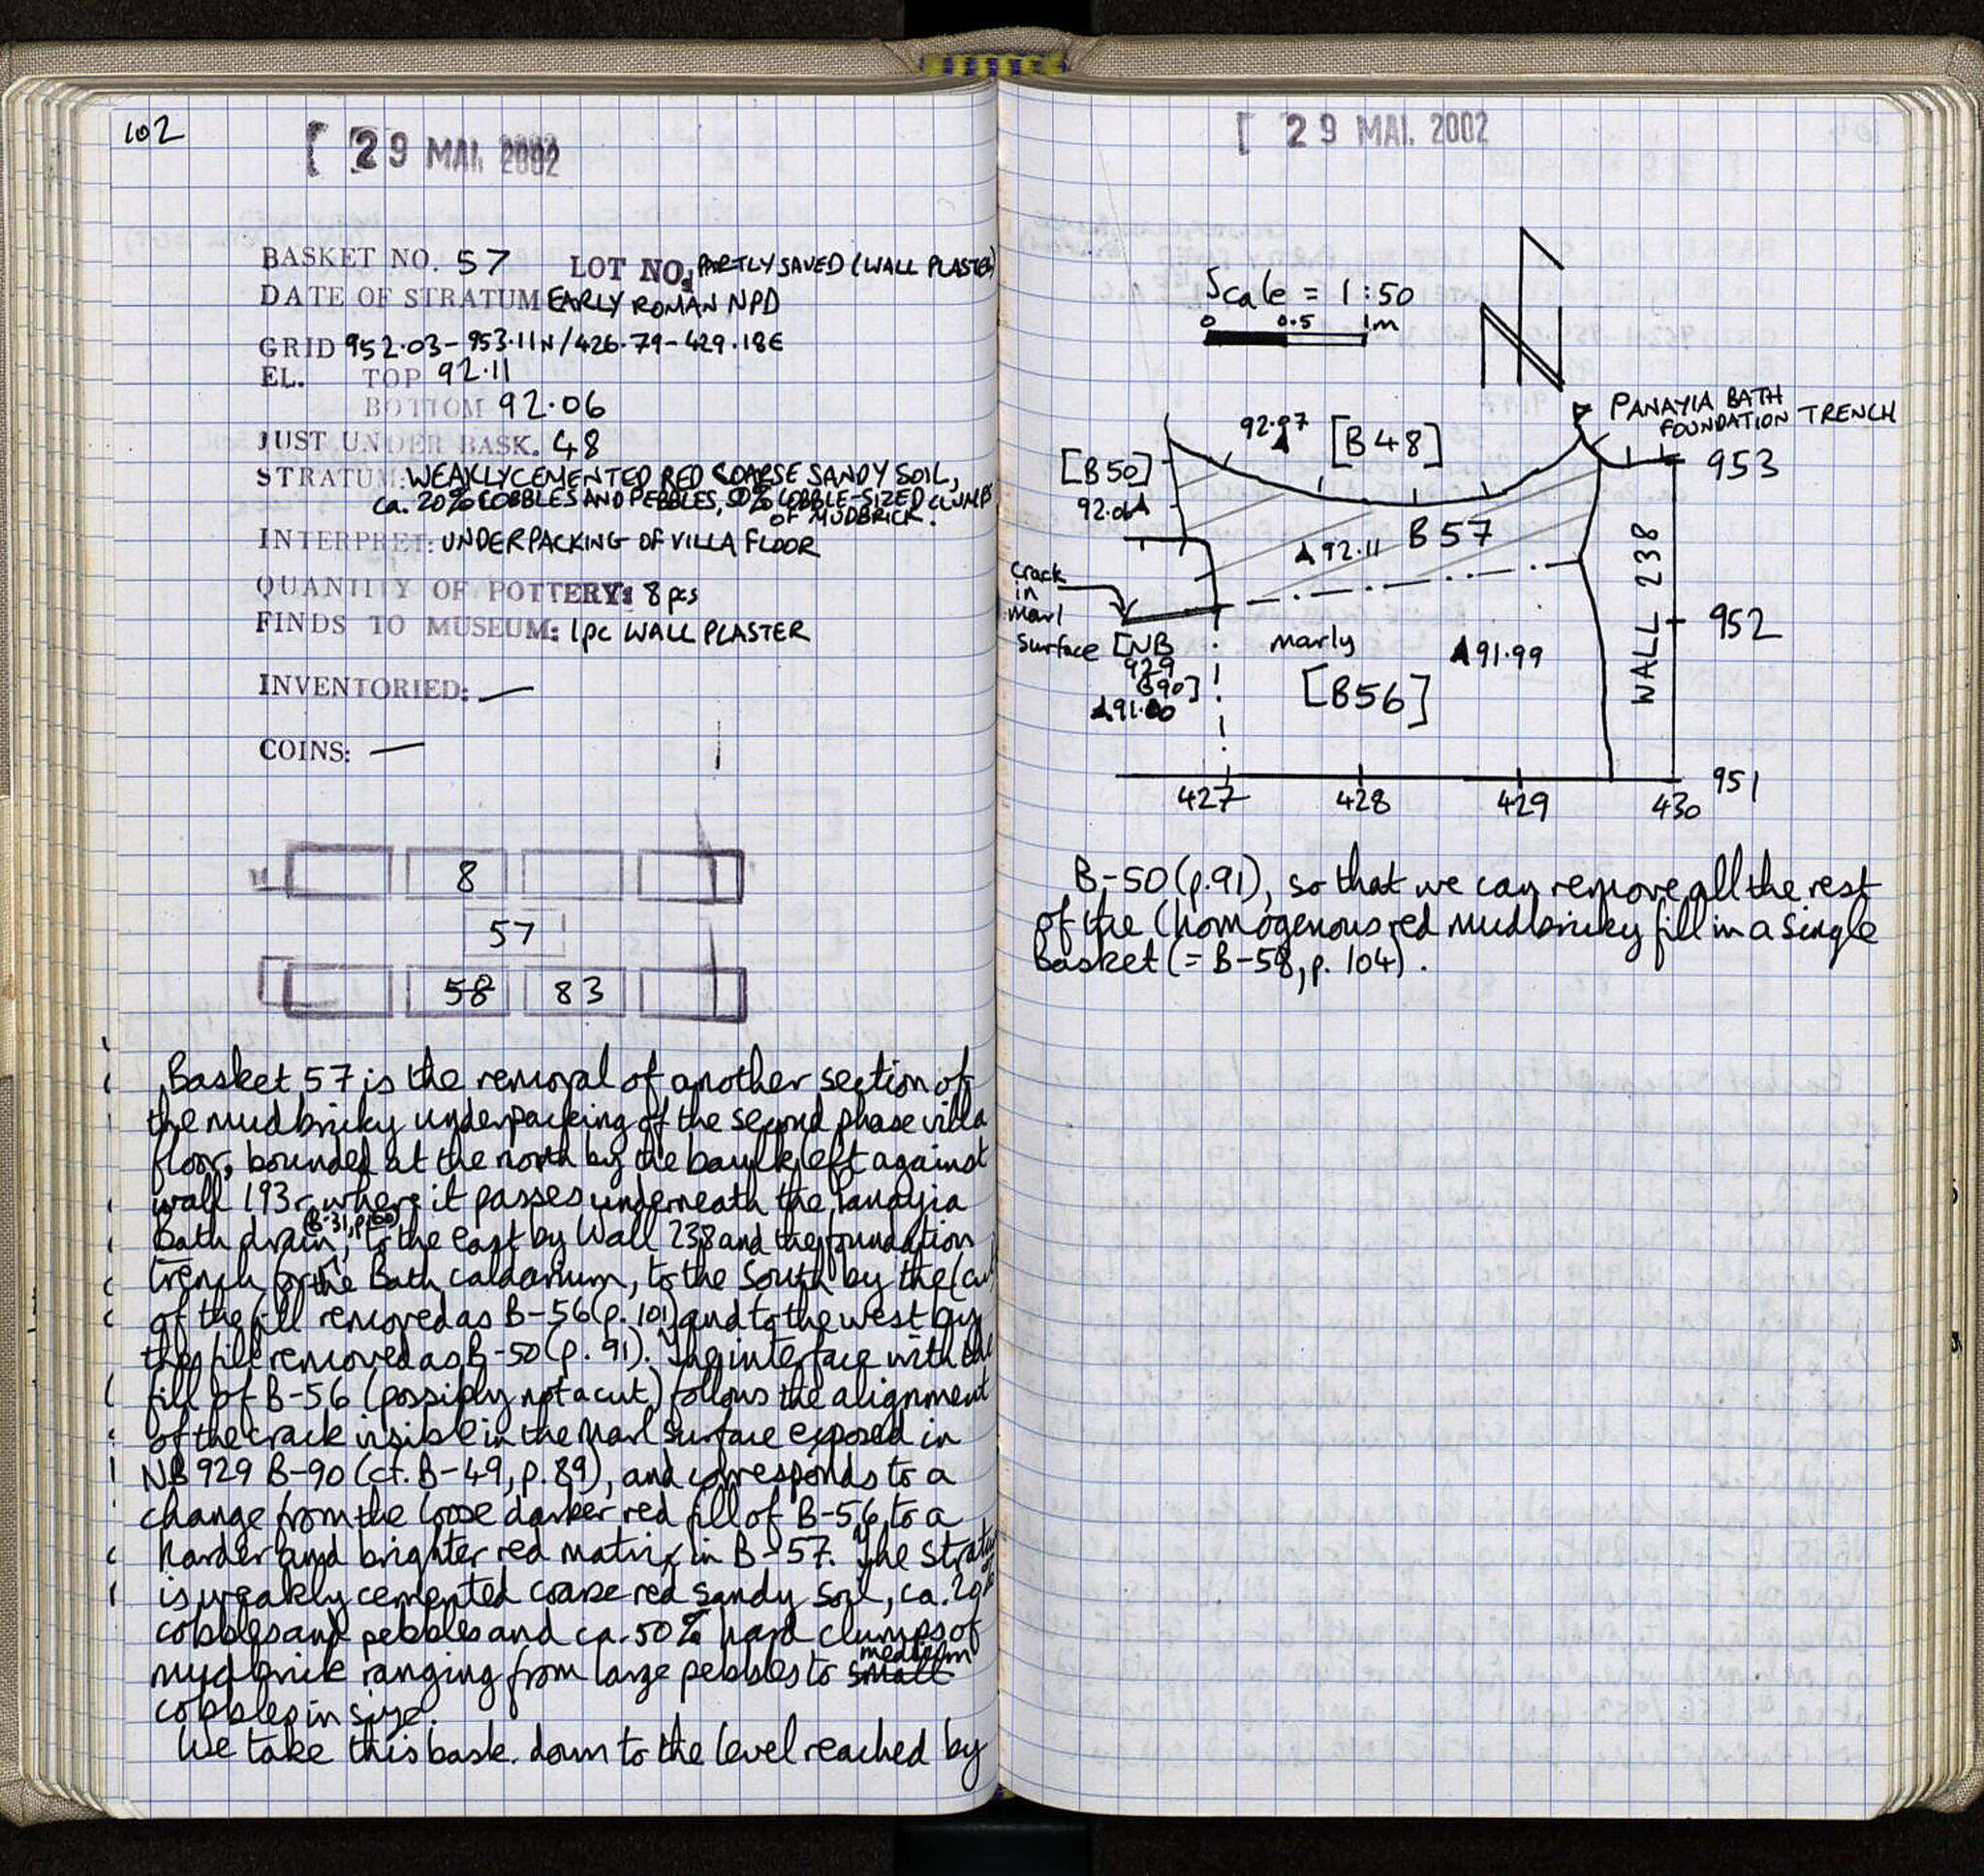 102
[ 29 MAI. 2002
BASKET NO. 57 LOT NO: PARTLY SAVED (WALL PLASTER)
DATE OF STRATUM EARLY ROMAN NPD
GRID 952.03-953.11N/426.79-429.18E
EL. TOP 92.11
BOTTOM 92.06
JUST UNDER BASK. 48
STRATUM: WEAKLY CEMENTED RED COARSE SANDY SOIL,
ca. 20% COBBLES AND PEBBLES, 50% COBBLE-SIZED CLUMPS
OF MUDBRICK.
INTERPRET: UNDERPACKING OF VILLA FLOOR
QUANTITY OF POTTERY: 8 pcs
FINDS TO MUSEUM: 1pc WALL PLASTER
INVENTORIED: —
COINS: —
8
57
58 83
Basket 57 is the removal of another section of
the mudbricky underpacking of the second phase villa
floor, bounded at the north by the baulk left against
wall 193 where it passes underneath the Panayia
Bath drain (B-31, p. 60), to the east by Wall 238 and the foundation
trench for the Bath caldarium, to the south by the (cut)
of the fill removed as B-56 (p. 101) and to the west by
the fill removed as B-50 (p. 91). The interface with the
fill of B-56 (possibly not a cut) follows the alignment
of the crack visible in the marl surface exposed in
NB 929 B-90 (cf. B-49, p. 89), and corresponds to a
change from the loose darker red fill of B-56 to a
harder and brighter red matrix in B-57. The stratum
is weakly cemented coarse red sandy soil, ca. 20%
cobbles and pebbles and ca. 50% hard clumps of
mudbrick ranging from large pebbles to small medium
cobbles in size.
We take this bask. down to the level reached by
[ 29 MAI. 2002
Scale = 1:50
0 0.5 1m
N
PANAYIA BATH
FOUNDATION TRENCH
92.07 [B48]
[B50]
92.06
953
B57
92.11
WALL 238
crack
in
marl
surface
952
[NB
929
B90]
marly
91.99
[B56]
951
427 428 429 430
B-50 (p.91), so that we can remove all the rest
of the (homogenous red mudbricky fill in a single
basket (= B-58, p. 104).